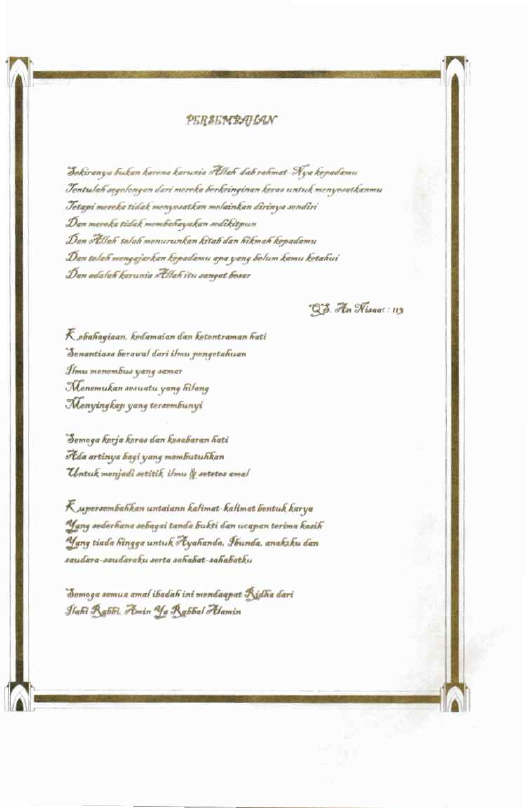 PERSEMBAHAN
Sekiranya bukan karena karunia Allah dab rahmat-Nya kepadamu
Tentulah segolongan dari mereka berkeinginan keras untuk menyesatkanmu
Tetapi mereka tidak menyesatkan melainkan dirinya sendiri
Dan mereka tidak membahayakan sedikitpun
Dan Allah telah menurunkan kitab dan hikmah kepadamu
Dan telah mengajarkan kepadamu apa yang belum kamu ketahui
Dan adalah karunia Allah itu sangat besar
QS. An Nisaa: : 113
Kebahagiaan, kedamaian dan ketentraman hati
Senantiasa berawal dari ilmu pengetahuan
Ilmu menembus yang samar
Menemukan sesuatu yang hilang
Menyingkap yang tersembunyi
Semoga kerja keras dan kesabaran hati
Ada artinya bagi yang membutuhkan
Untuk menjadi setitik ilmu & setetes amal
Kupersembahkan untaiann kalimat-kalimat bentuk karya
Yang sederhana sebagai tanda bukti dan ucapan terima kasih
Yang tiada hingga untuk Ayahanda, Ibunda, anakzku dan
saudara-saudaraku serta sahabat-sahabatku
Semoga semua amal ibadah ini mendaapat Ridha dari
Ilahi Rabbi, Amin Ya Rabbal Alamin